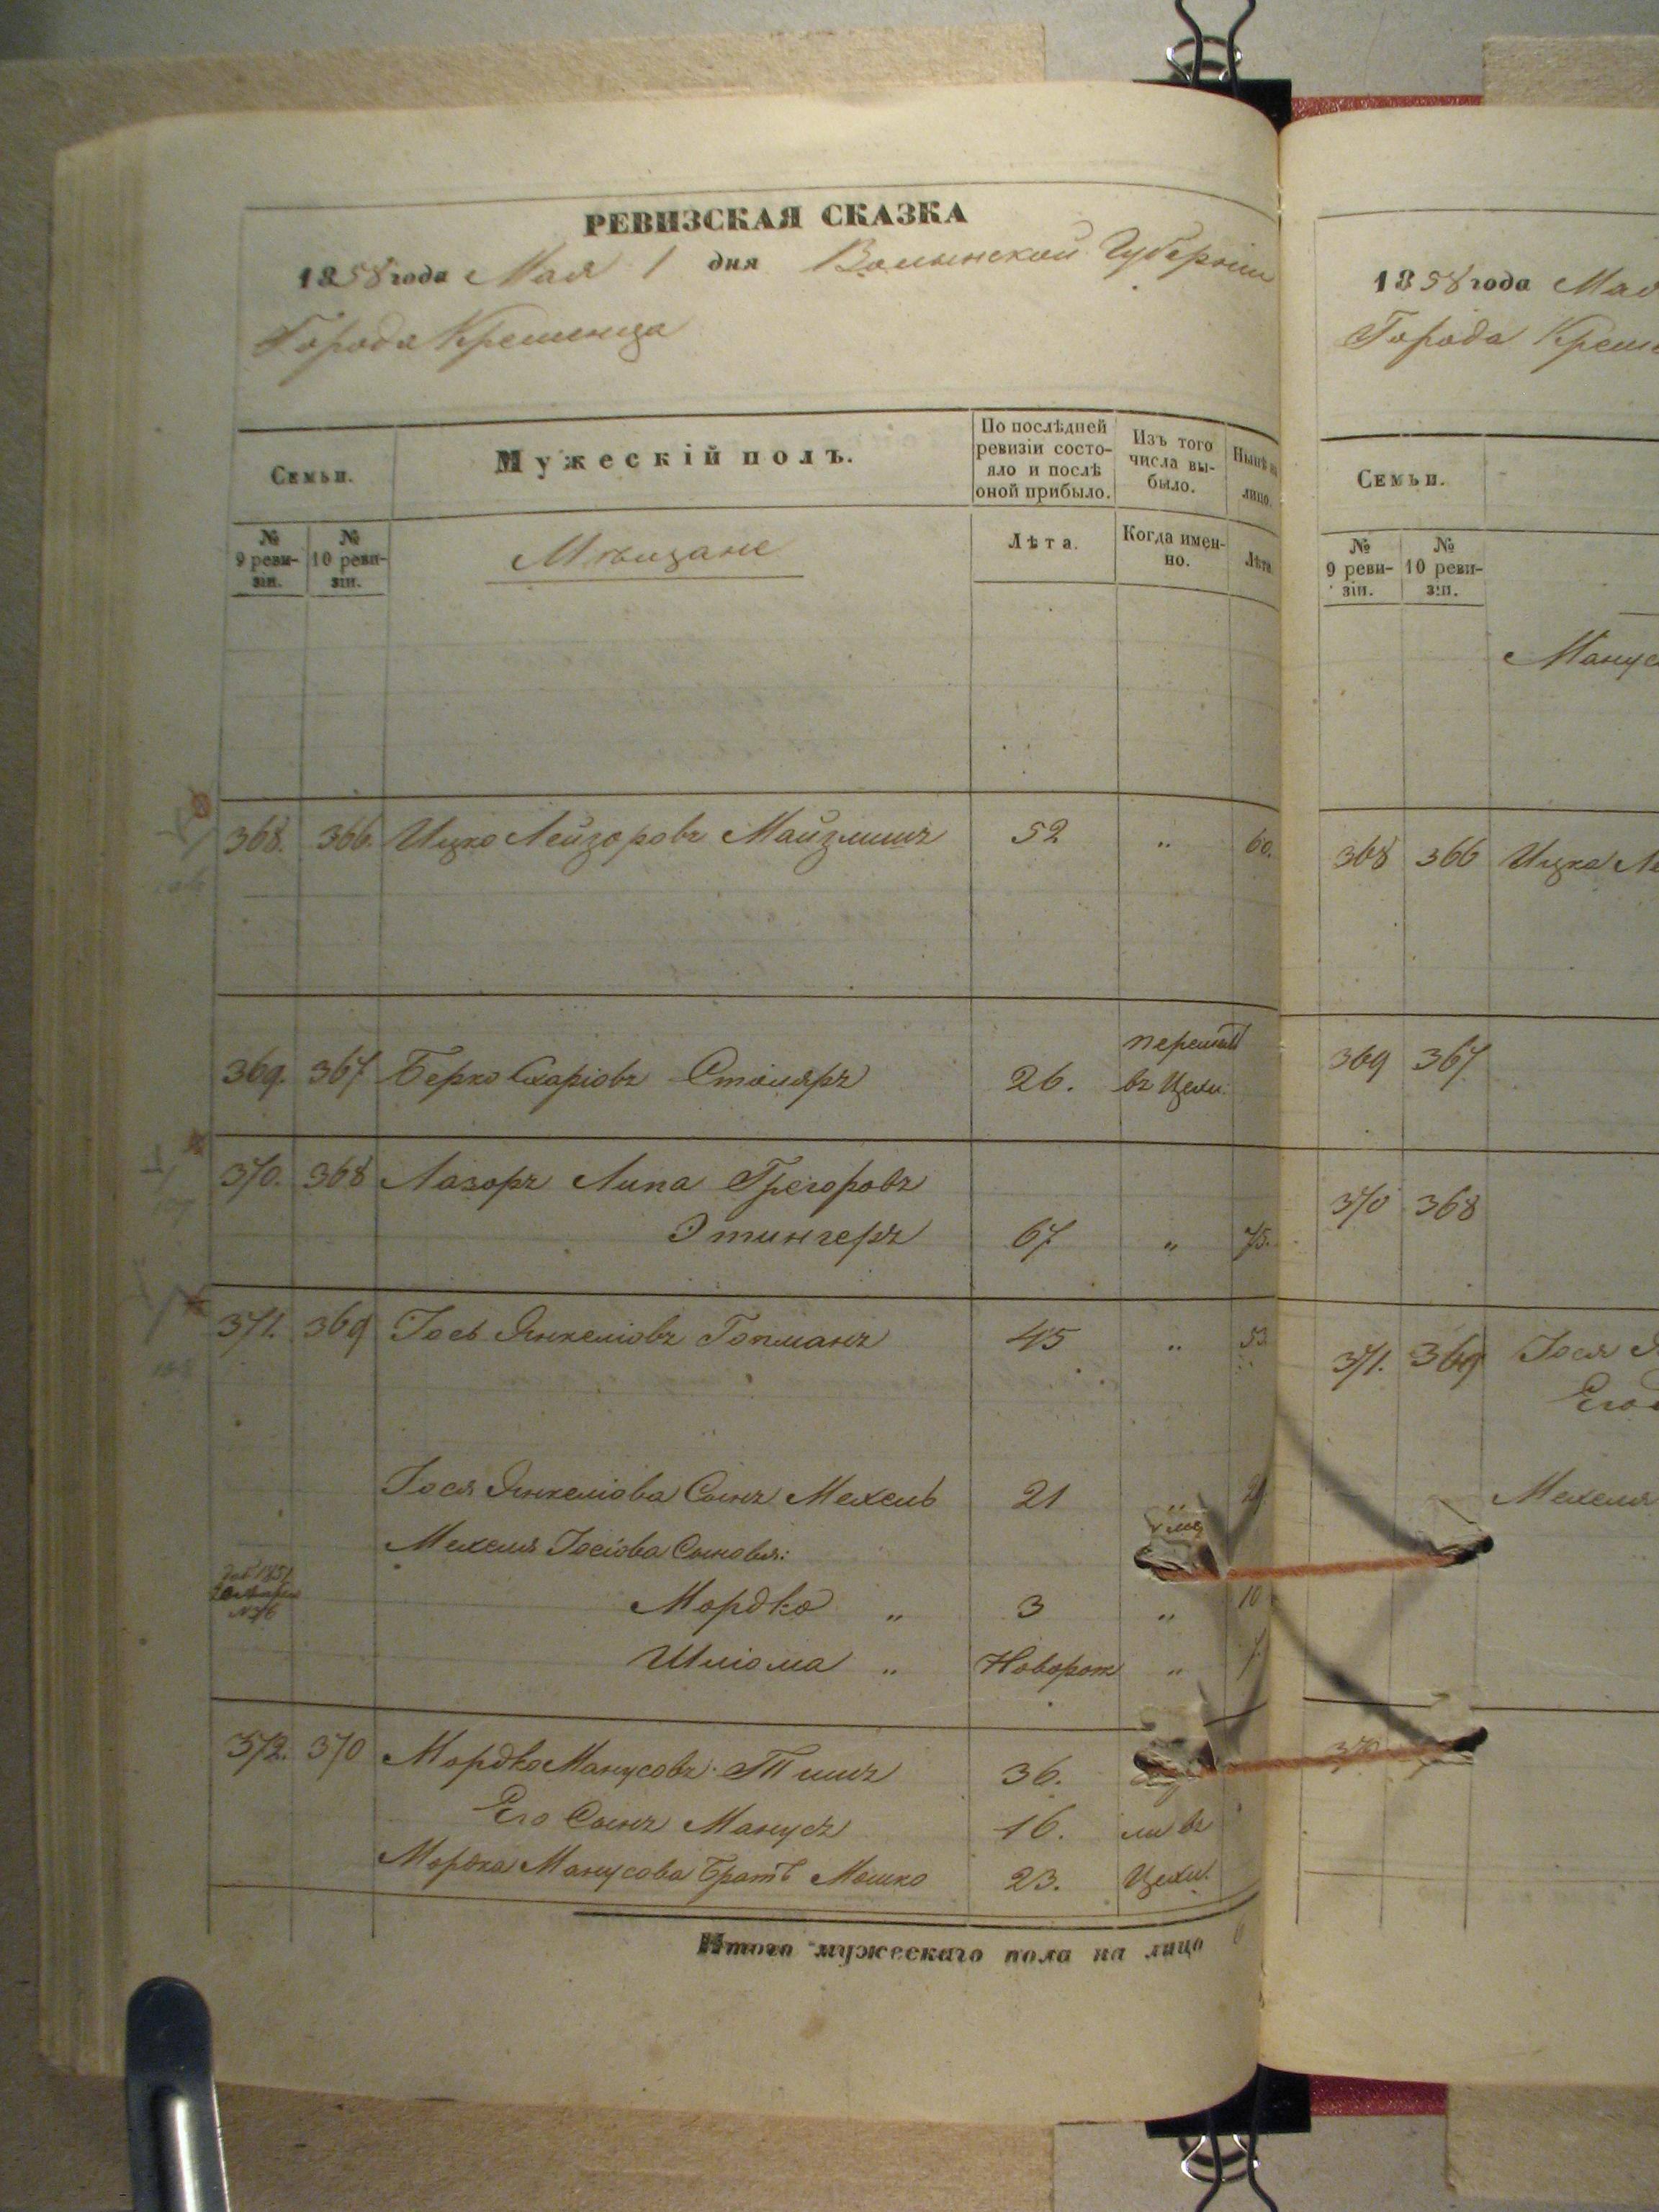 РЕВИЗСКАЯ СКАЗКА
1858 года Мая 1 дня Волынской Губерніи
Города Кременца
Семьи.
Мужескій полъ.
По послѣдней ревизіи состо-
яло и послѣ
оной прибыло.
Изъ того
числа вы-
было.
Нынѣ на
лицо.
№
9 реви-
зіи.
№
10 реви-
зіи.
Мѣщане
Лѣта.
Когда имен-
но.
Лѣта.
368. 366. Ицко Лейзоровъ Майзлишъ 52 " 60.
369. 367 Берко Сухаріовъ Столяръ 26. въ Цехи.
370. 368 Лазоръ Липа Грегоровъ
Этингеръ 67 " 75.
371. 369 Іось Янкеліовъ Гопманъ 45 " 53.
Іося Янкеліова Сынъ Мехель 21 "
Мехеля Іосіова Сыновья:
Мордко " 3 " 10
Шліома " Новорож " 7.
372. 370 Мордко Манусовъ Тишъ 36.
Его Сынъ Манусъ 16. ли въ
Мордка Манусова Братъ Мошко 23. Цехи.
Итого мужескаго пола на лицо 6
1858 года Мая
Города Креме
Семьи.
№
9 реви-
зіи.
№
10 реви-
зіи.
Манус
368 366 Ицка Ле
369 367
370 368
371. 369 Іося Я
Его
Мехеля
370